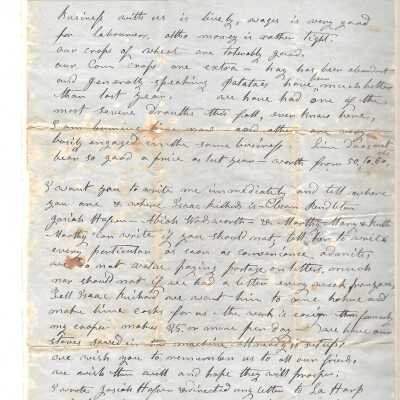 Business with us is lively, wages is very good
for labourers, altho money is rather tight.
our crops of wheat are tolerably good.
our Corn crops are extra - hay has been abundant
and generally speaking Potatoes have been much better
than last year. we have had one of the
most severe Drouths this fall, ever known here,
I am and others are very
busily engaged in the same business
been so good a price as last year - worth from 50, to 60,
I want you to write me immediately and tell where
you are & where Isaac is
Josiah - Wadsworth - & Martha Mary &
Martha Can write if you should not, tell her to write
every particular as soon as convenience admits,
we do not value paying postage on letters, much
nor should not if we had a letter every week from you,
Tell Isaac we want him to come home and
make time for us - the work is easier than formerly
my cooper makes $5 or more per day - we have our
staves sawed in the machine
we wish you to remember us to all our friends
we wish them well and hope they will prosper.
I wrote Josiah & directed my letter to La Harp